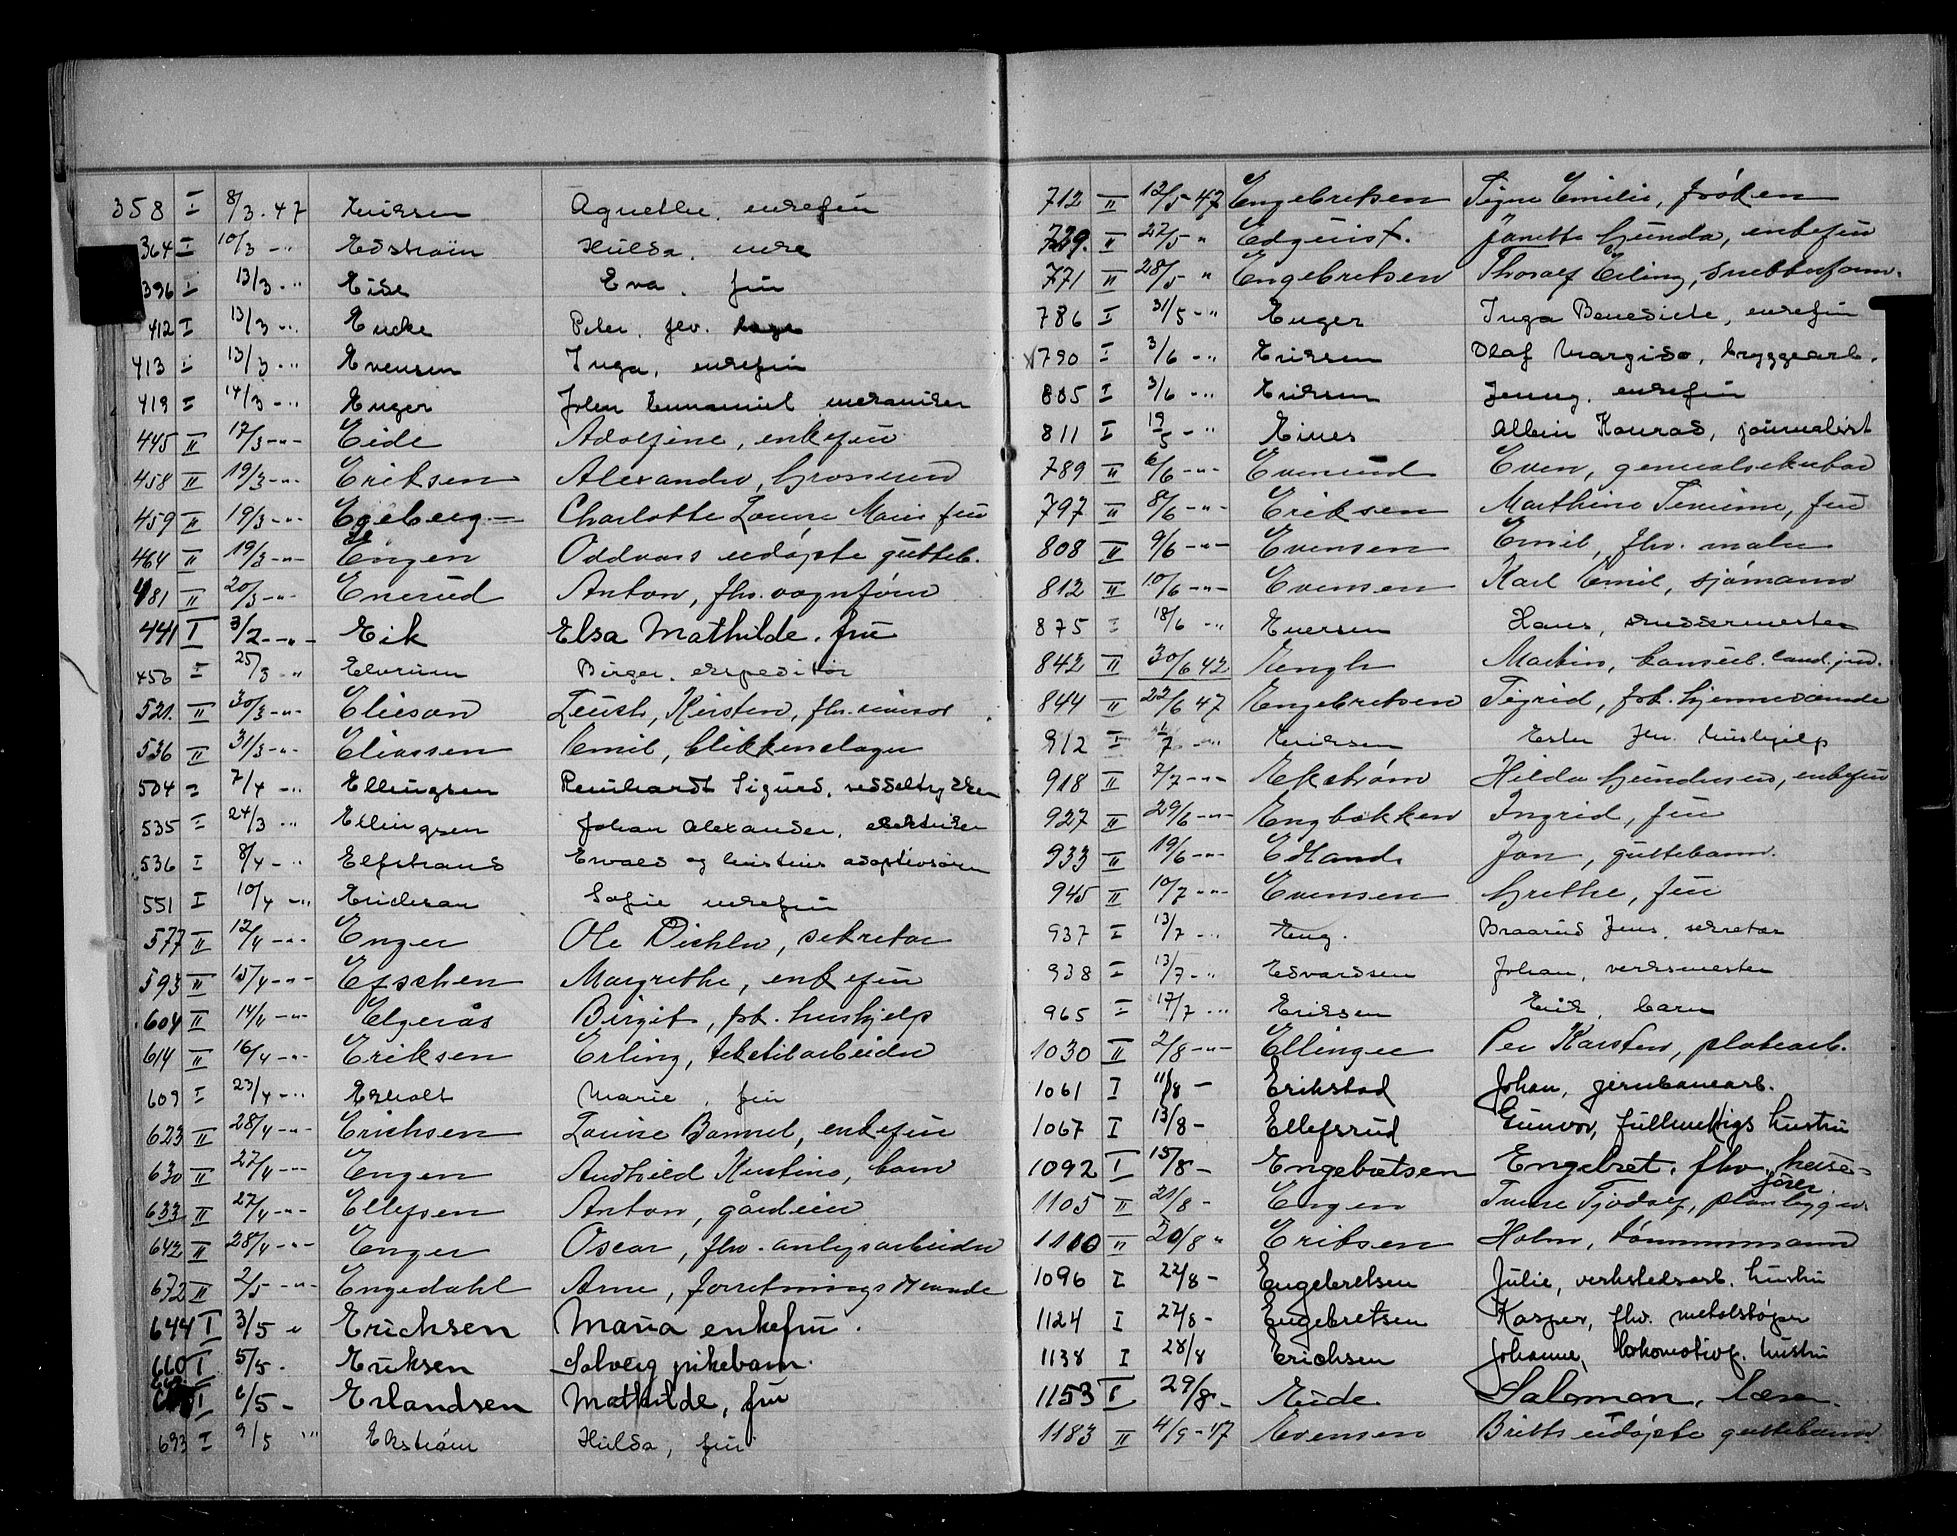 358 I 8/3 - 47 Eriksen Agnethe, enkefru
364 I 10/3 - " Edstrøm Hulda, enke
396 I 13/3 - " Eide Eva, fru
412 I 13/3 - " Encke Peter, fhv.
413 I 13/3 - " Evensen Inga, enkefru
419 I 14/3 - " Enger Johan Emmanuel, mekaniker
445 II 17/3 - " - Eide Adolfine, enkefru
458 II 19/3 - " - Eriksen Alexander, grosserer
459 II 19/3 - " - Egeberg Charlotte Louise Marie fru
464 II 19/3 - " - Engen Oddvars udøpte gutteb.
481 II 20/3 - " - Enerud Anton, fhv. vognfører
441 I 3/2 - " - Eik Elsa Mathilde, fru
456 I 25/3 - " Elvrum Birger, ekspeditør
521. II 30/3 - " - Elieson Kirsten, fhv.
536 II 31/3 - " - Eliassen Emil, blikkenslager
504 I 7/4 - " Ellingsen Reinhardt Sigurd, seddeltrykker
535 I 24/3 - " Ellingsen Johan Alexander, elektriker
536 I 8/4 - " Elfstrand Ewald og hustrus adoptivsønn
551 I 10/4 - " Erickson Sofie enkefru
577 II 12/4 - " - Enger Ole Dichler, sekretær
593 II 15/4 - " - Efschen Margrethe, enkefru
604 II 14/4 - " - Elgerås Birgit, frk. hushjelp
614 II 16/4 - " - Eriksen Erling, tekstilarbeider
609 I 23/4 - " Ekholt Marie, fru
623 II 28/4 - " - Erichsen Louise Bommel, enkefru
630 II 27/4 - " - Engen Audhild Kristine, barn
633 II 27/4 - " - Ellefsen Anton, gårdeier
642 II 28/4 - " - Enger Oscar, fhv. anlegsarbeider
672 II 2/5 - " - Engedahl Arne, forretningsdrivende
644 I 3/5 " Erichsen Maria enkefru.
660 I 5/5 - Eriksen Solveig pikebarn.
I 6/5 - Erlandsen Mathilde, fru
693 I 9/5 " Ekstrøm Hulda, fru
712 II 12/5 - 47 Engebretsen Signe Emilie, frøken
739. II 27/5 " Edquist. Janette Gunda, enkefru
771 II 28/5 " Engebretsen Thoralf Erling, snekkerform.
786 I 31/5 - " Enger Inga Benedicte, enkefru
790 I 3/6 - " Eriksen Olaf Margido, bryggearb.
805 I 3/6 - " Eriksen Jenny, enkefru
811 I 19/5 - " Eines Albin Konrad, journalist
789 II 6/6 - " - Evenrud Even, generalsekretær
797 II 8/6 - " - Eriksen Marthine Severine, fru
808 II 9/6 - " - Evensen Emil, fhv. maler
812 II 10/6 - " - Evensen Karl Emil, sjømann
875 I 18/6 - " Evensen Hans, skreddermester
842 II 30/6 42 Engh Martin, konsul. cand. jur.
844 II 22/6 47 Engebretsen Sigrid, frk. hjemmeværende
912 I 1/7 - " Eriksen Ester fhv. hushjelp
918 II 7/7 - " - Ekstrøm Hilda Gundersen, enkefru
927 II 29/6 - " - Engbakken Ingrid, fru
933 II 19/6 - " - Edland. Jan, guttebarn.
945 II 10/7 - " - Evensen Grethe, fru
937 I 13/7 - " Eng. Braarud Jens, sekretær
938 I 13/7 - " Edvardsen Johan, verksmester
965 I 17/7 - " Eriksen Erik, barn
1030 II 2/8 - " - Ellingee Per Karsten, platearb.
1061 I 11/8 - Erikstad Johan, jernbanearb.
1067 I 13/8 - Ellefsrud Gunvor, fullmektigs hustru
1092 I 15/8 - Engebretsen Engebret, fhv.
1105 II 21/8 - Engen Tjodolf, planlegger
1110 II 20/8 " Eriksen Holm, tømmermann
1096 I 22/8 - Engebretsen Julie, verkstedsarb. hustru
1124 I 27/8 - Engebretsen Kasper, fhv. metalstøper
1138 I 28/8 Erichsen Johanne, Lokomotivf. hustru
1153 I 29/8 - Eide Salomon, lærer.
1183 II 4/9 - 47 Evensen Britts udøpte guttebarn